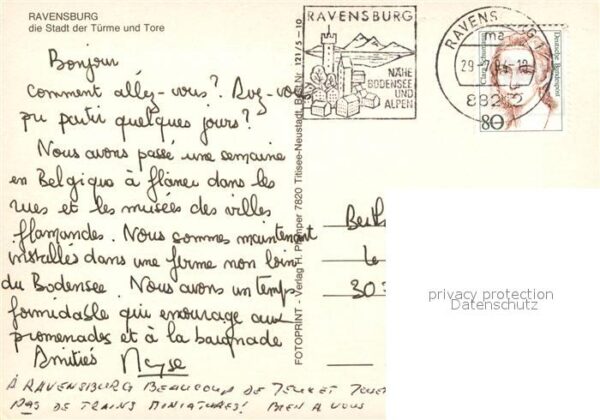 RAVENSBURG
die Stadt der Türme und Tore
RAVENSBURG
NÄHE
BODENSEE
UND
ALPEN
RAVENSBURG 1
ma
882
Deutsche Bundespost
80
Bonjour
Comment allez-vous? Avez-vous
pu partir quelques jours?
Nous avons passé une semaine
en Belgique à flâner dans les
rues et les musées des villes
flamandes. Nous sommes maintenant
installés dans une ferme non loin
du Bodensee. Nous avons un temps
formidable qui encourage aux
promenades et à la baignade
Amitiés
À RAVENSBURG BEAUCOUP DE
PAS DE TRAINS MINIATURES! BIEN A VOUS
FOTOPRINT - Verlag H. 7820 Titisee-Neustadt, Best.Nr. 121/5 - 10
Berth
le
30
privacy protection
Datenschutz